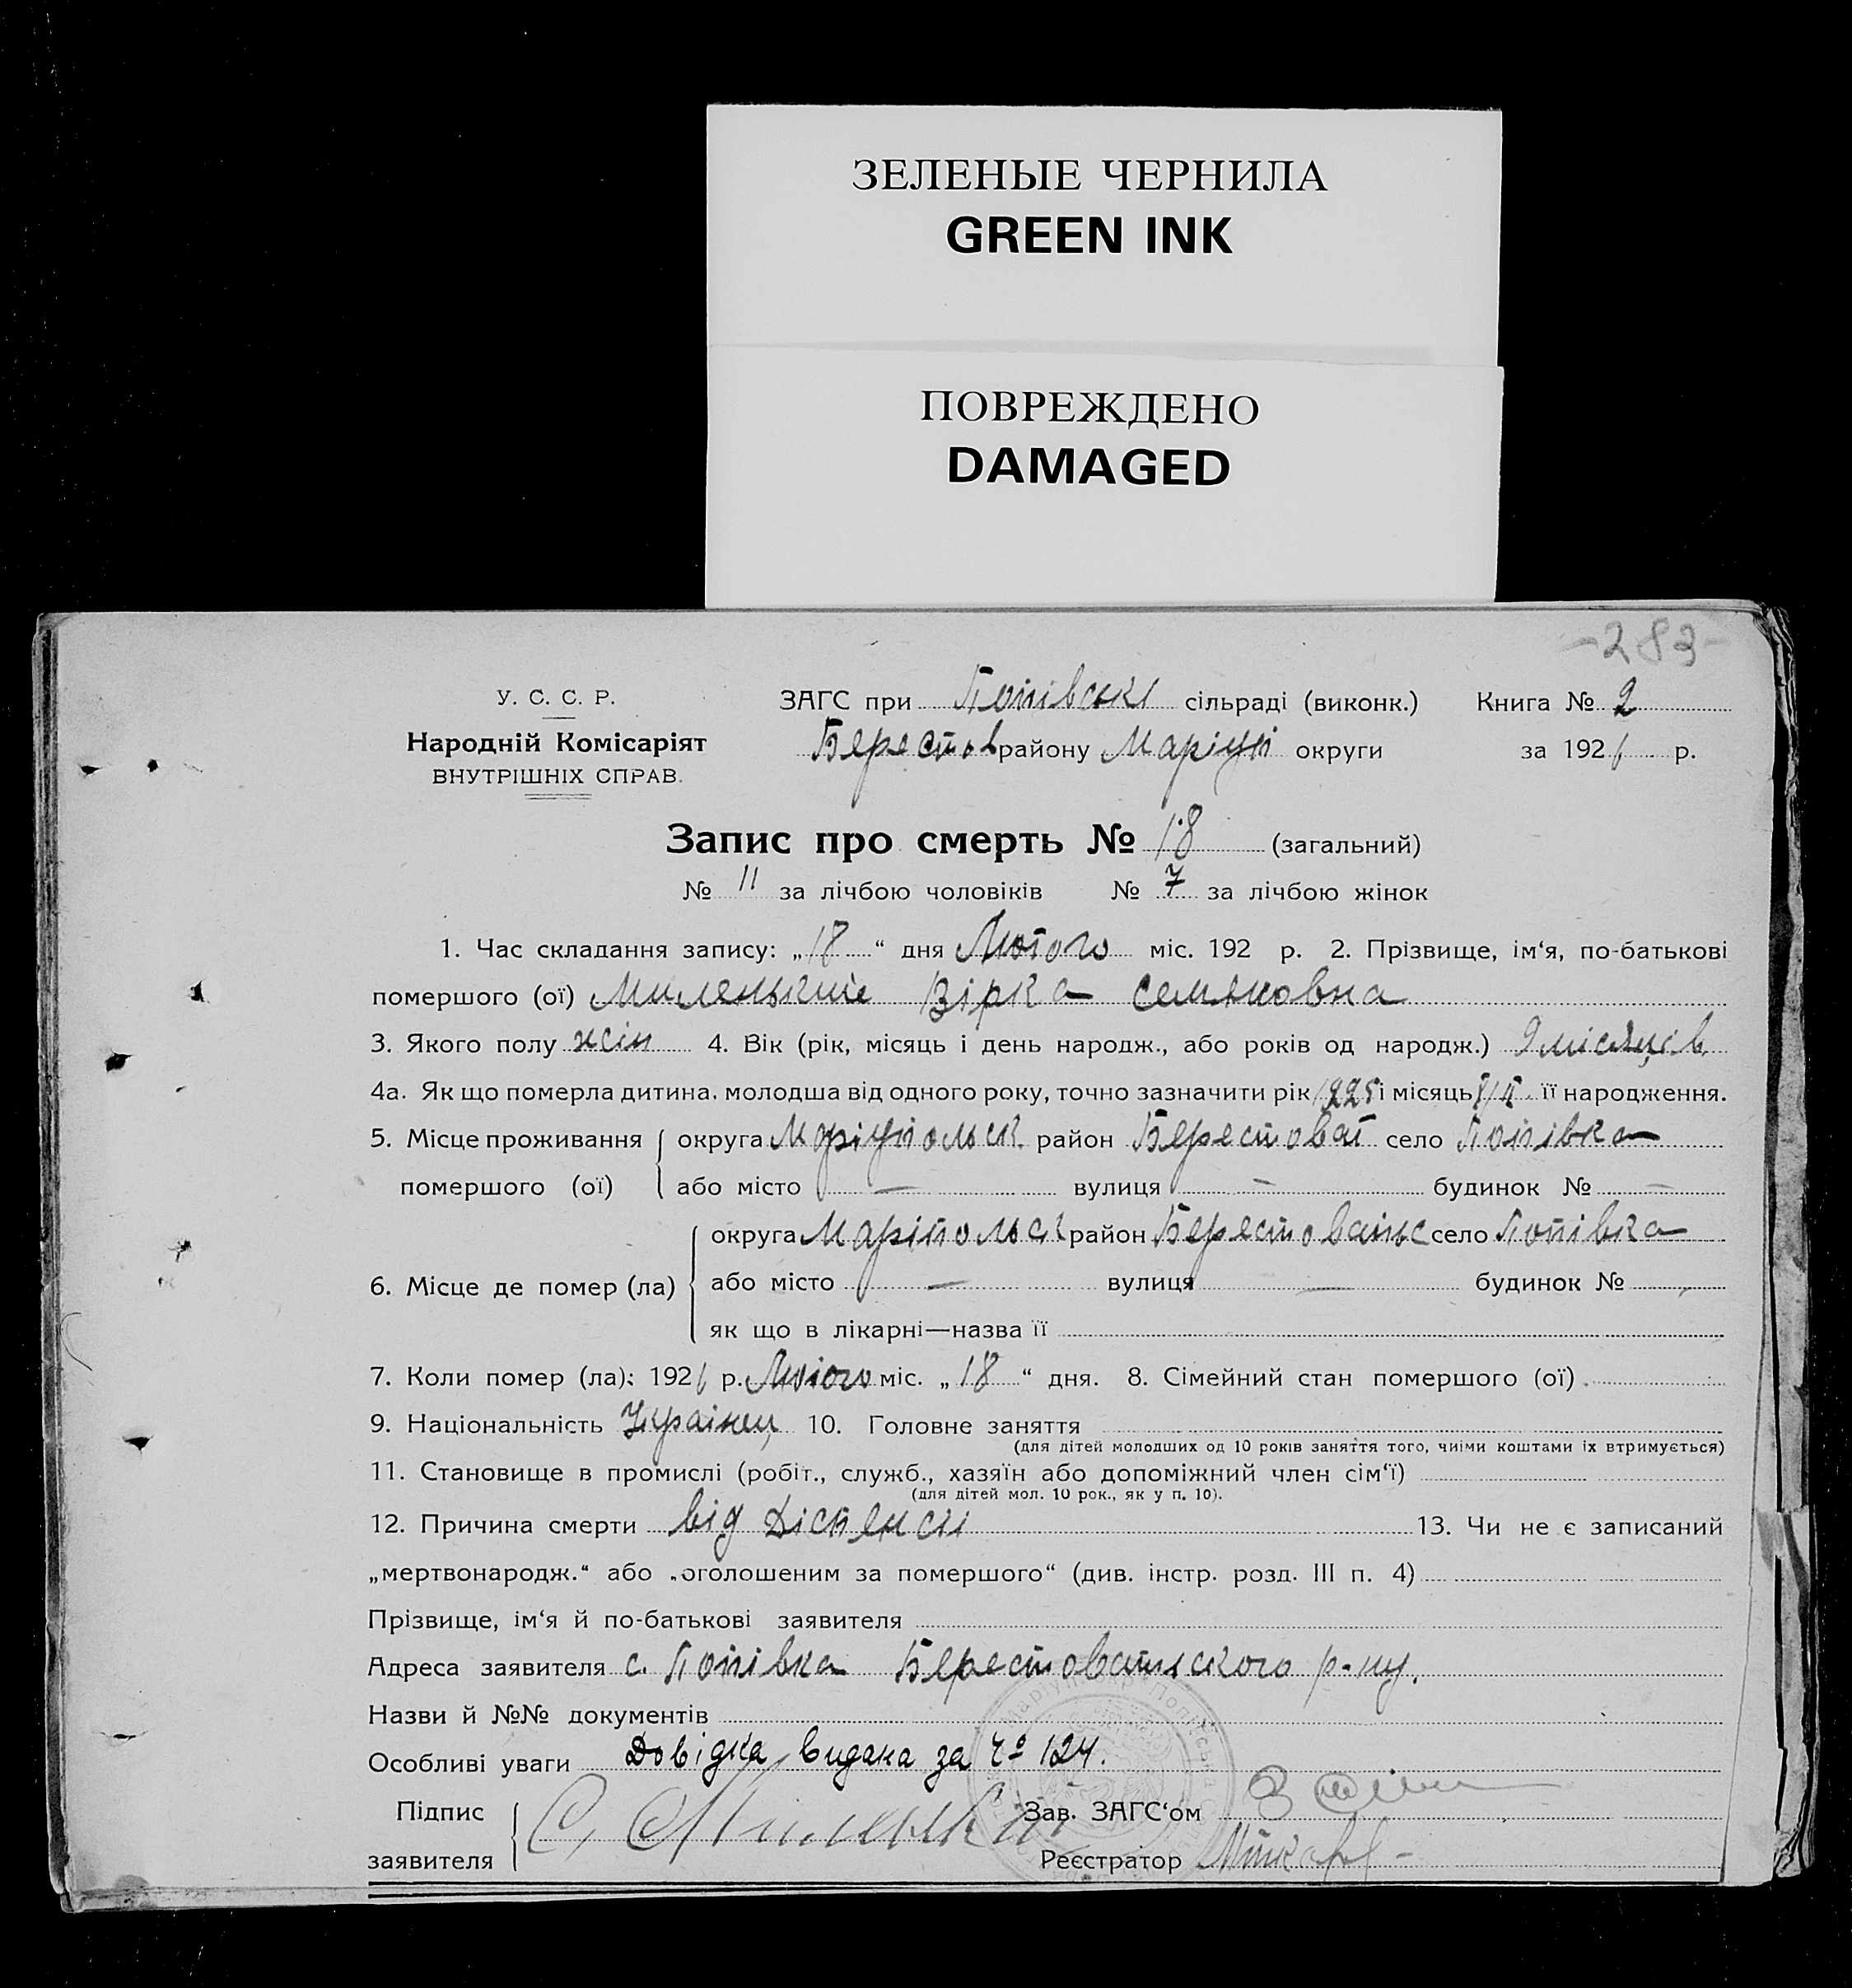 ЗЕЛЕНЫЕ ЧЕРНИЛА
GREEN INK
ПОВРЕЖДЕНО
DAMAGED
-283-
У. С. С. Р. ЗАГС при Попівські сільраді (виконк.) Книга № 2
Народній Комісаріят Берестов району Маріуп округи за 1926 р.
ВНУТРІШНІХ СПРАВ.
Запис про смерть № 18 (загальний)
№ 11 за лічбою чоловіків № 7 за лічбою жінок
1. Час складання запису: „18“ дня Лютого міс. 192 р. 2. Прізвище, ім‘я, по-батькові
помершого (ої) Вірка
3. Якого полу жін 4. Вік (рік, місяць і день народж., або років од народж.) 9 місяців
4а. Як що померла дитина, молодша від одного року, точно зазначити рік 1925 і місяць її народження.
5. Місце проживання округа Маріупольск район Берестоват село Попівка
помершого (ої) або місто — вулиця — будинок № —
округа Маріпольск район Берестоватьс село Попівка
6. Місце де помер (ла) або місто — вулиця — будинок №
як що в лікарні—назва її
7. Коли помер (ла): 1926 р. Лютого міс. „18“ дня. 8. Сімейний стан помершого (ої)
9. Національність Українец 10. Головне заняття
(для дітей молодших од 10 років заняття того, чиїми коштами їх втримується)
11. Становище в промислі (робіт., служб., хазяїн або допоміжний член сім‘ї)
(для дітей мол. 10 рок., як у п. 10).
12. Причина смерти від Діспенсіі 13. Чи не є записаний
„мертвонародж.“ або „оголошеним за помершого“ (див. інстр. розд. III п. 4)
Прізвище, ім‘я й по-батькові заявителя
Адреса заявителя с. Попівка Берестоватьского р-ну.
Назви й №№ документів
Особливі уваги Довідка видана за № 124.
Підпис Зав. ЗАГС‘ом
заявителя Реєстратор